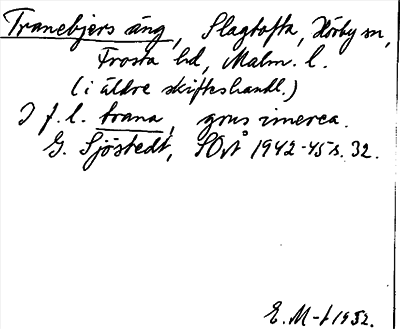 Tranebjers äng, Slagtofta, Hörby sn,
Frosta hd, Malm. l.
(i äldre skifteshandl.)
I f. l. trana, grus imerea.
G. Sjöstedt, SOrtÅ 1942-45 s. 32.
E. M-t 1952.